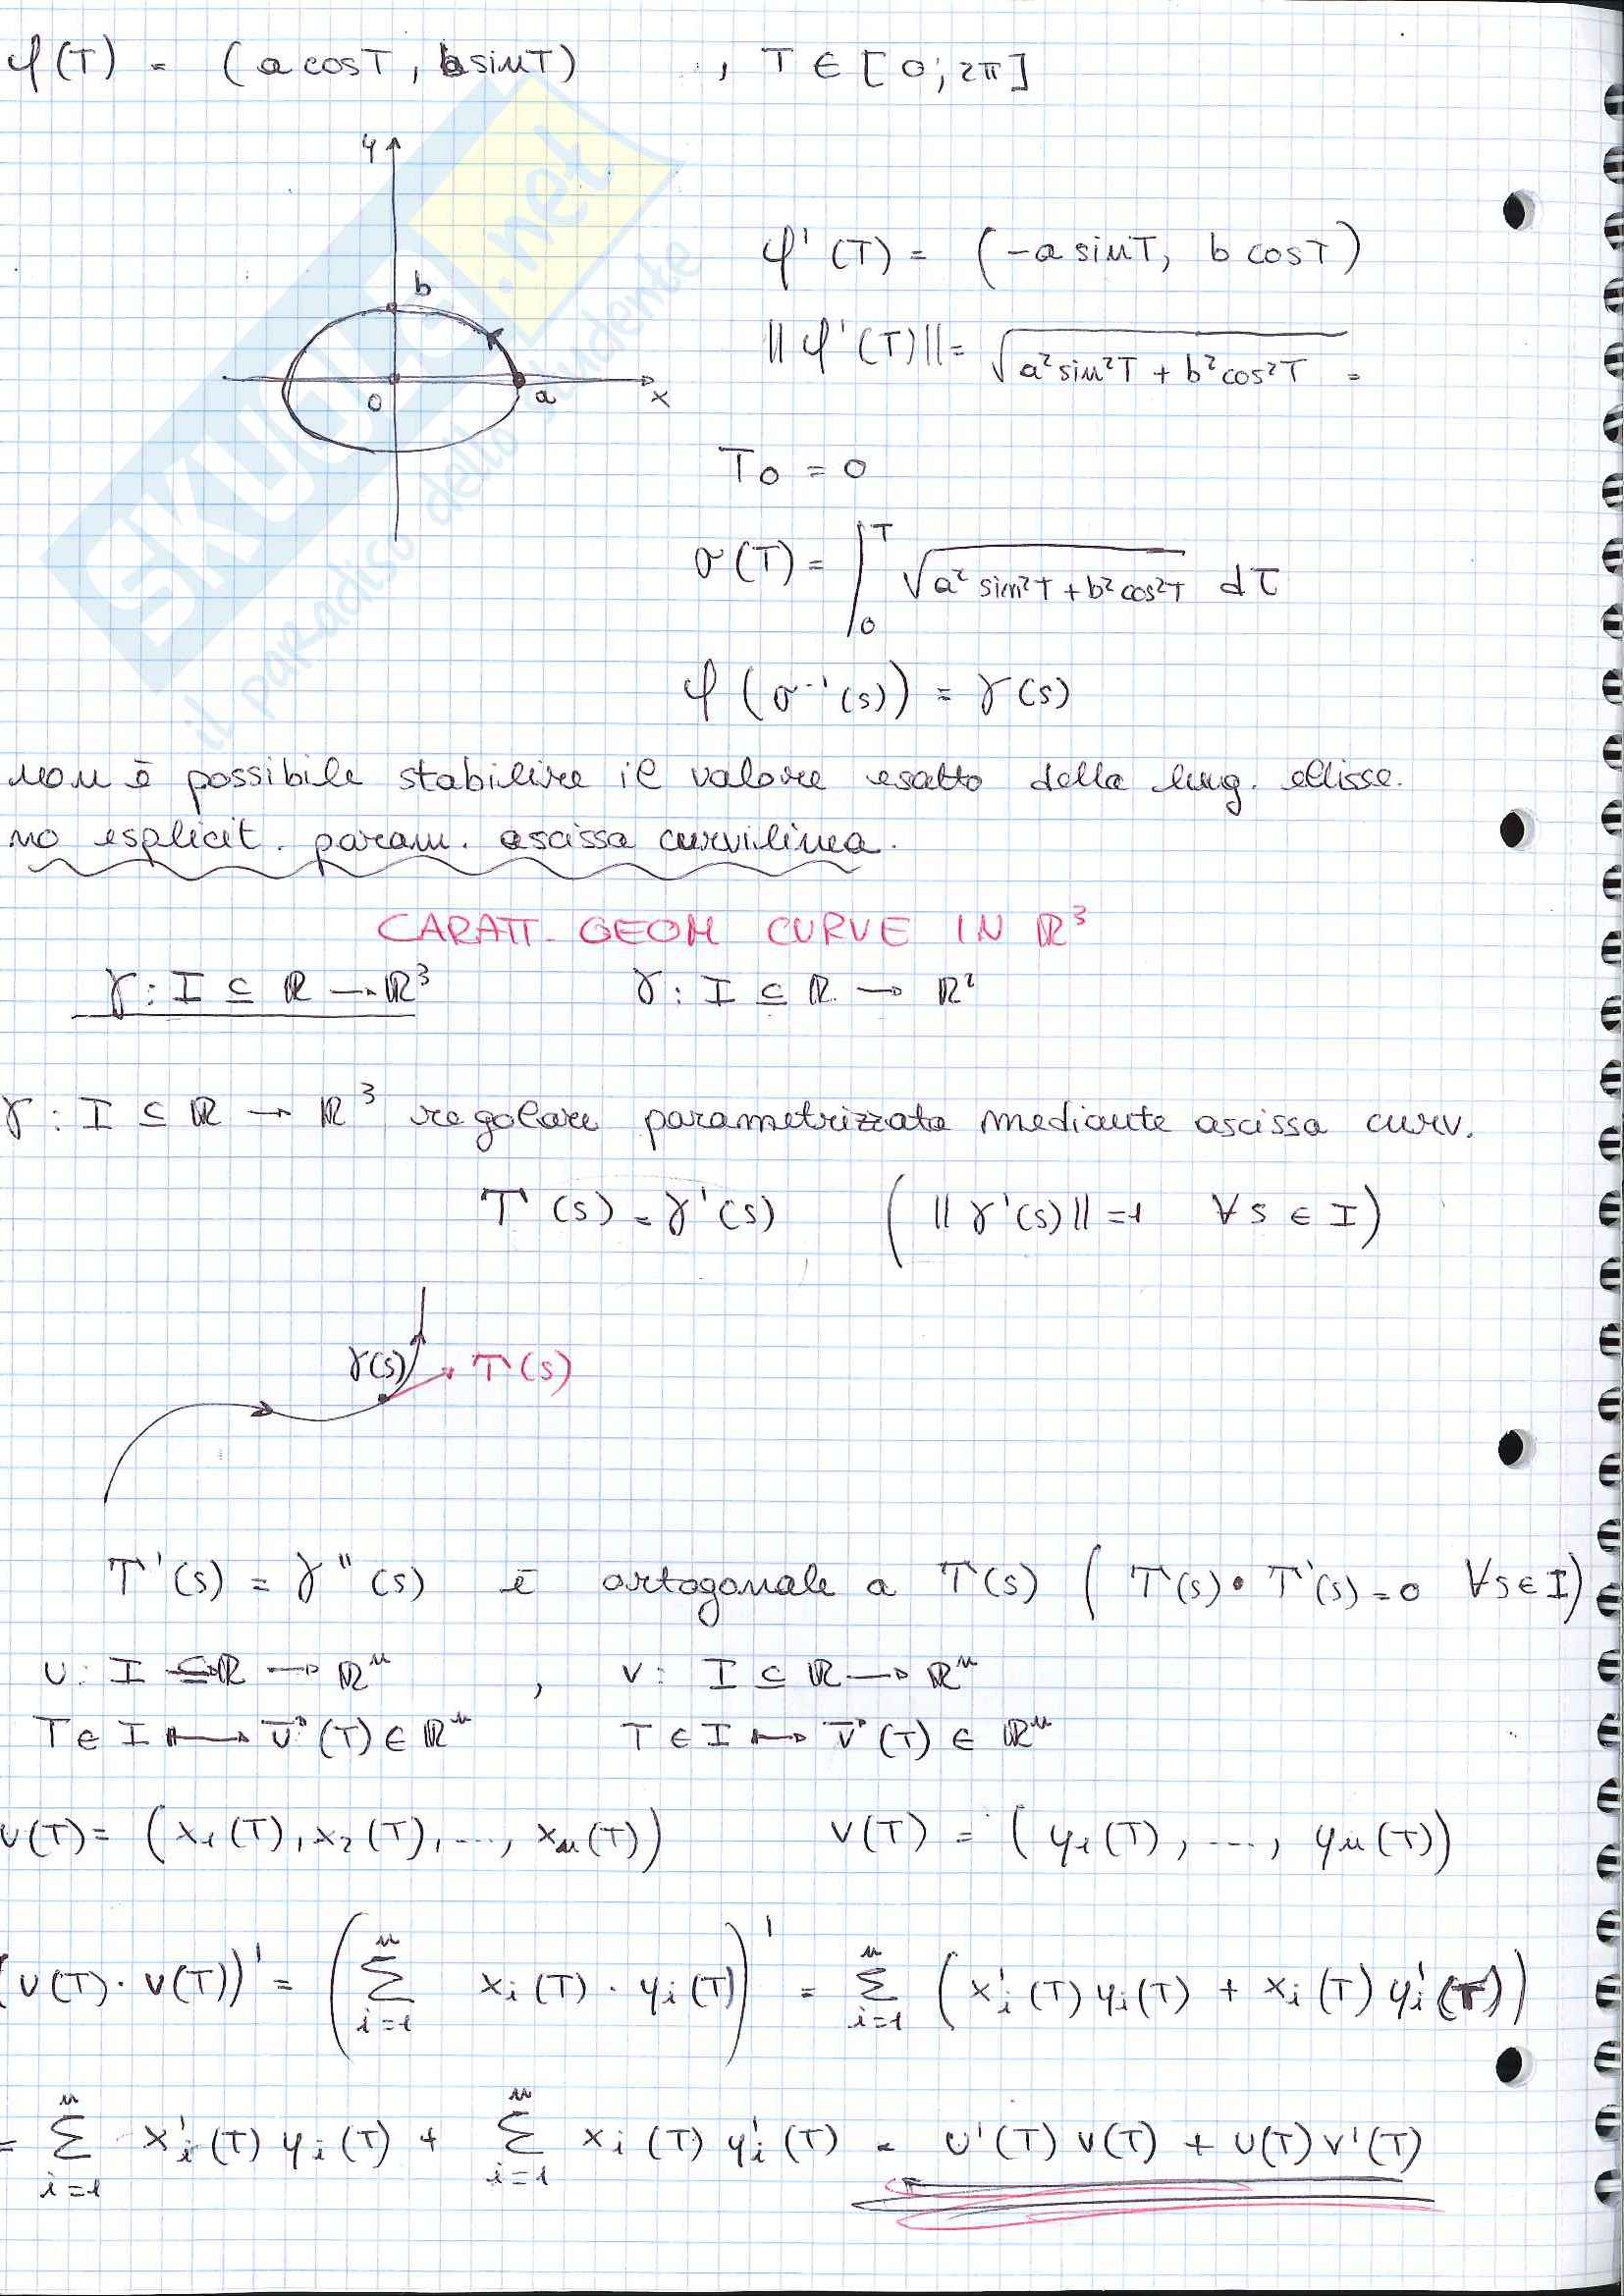 φ(T) = (a cosT, b sinT) , T ∈ [0; 2π]
y
b
0
a
x
φ'(T) = (-a sinT, b cosT)
||φ'(T)|| = √(a² sin²T + b² cos²T) =
T0 = 0
σ(T) = ∫₀ᵀ √(a² sin²T + b² cos²T) dτ
φ(σ⁻¹(s)) = γ(s)
non è possibile stabilire il valore esatto della lung. ellisse.
no esplicit. param. ascissa curvilinea.
CARATT. GEOM CURVE IN ℝ³
γ: I ⊆ ℝ → ℝ³ γ: I ⊆ ℝ → ℝ²
γ: I ⊆ ℝ → ℝ³ regolare parametrizzata mediante ascissa curv.
T(s) = γ'(s) (||γ'(s)|| = 1 ∀s ∈ I)
γ(s)
T(s)
T'(s) = γ''(s) è ortogonale a T(s) (T(s) • T'(s) = 0 ∀s ∈ I)
U: I ⊆ ℝ → ℝⁿ , V: I ⊆ ℝ → ℝⁿ
T ∈ I ↦ U⃗(T) ∈ ℝⁿ T ∈ I ↦ V⃗(T) ∈ ℝⁿ
U(T) = (x₁(T), x₂(T), ..., xₙ(T)) V(T) = (y₁(T), ..., yₙ(T))
(U(T) · V(T))' = (∑ᵢ₌₁ⁿ xᵢ(T) · yᵢ(T))' = ∑ᵢ₌₁ⁿ (x'ᵢ(T) yᵢ(T) + xᵢ(T) y'ᵢ(T))
= ∑ᵢ₌₁ⁿ x'ᵢ(T) yᵢ(T) + ∑ᵢ₌₁ⁿ xᵢ(T) y'ᵢ(T) = U'(T) V(T) + U(T) V'(T)
SKUOLA.net
il paradiso dello studente